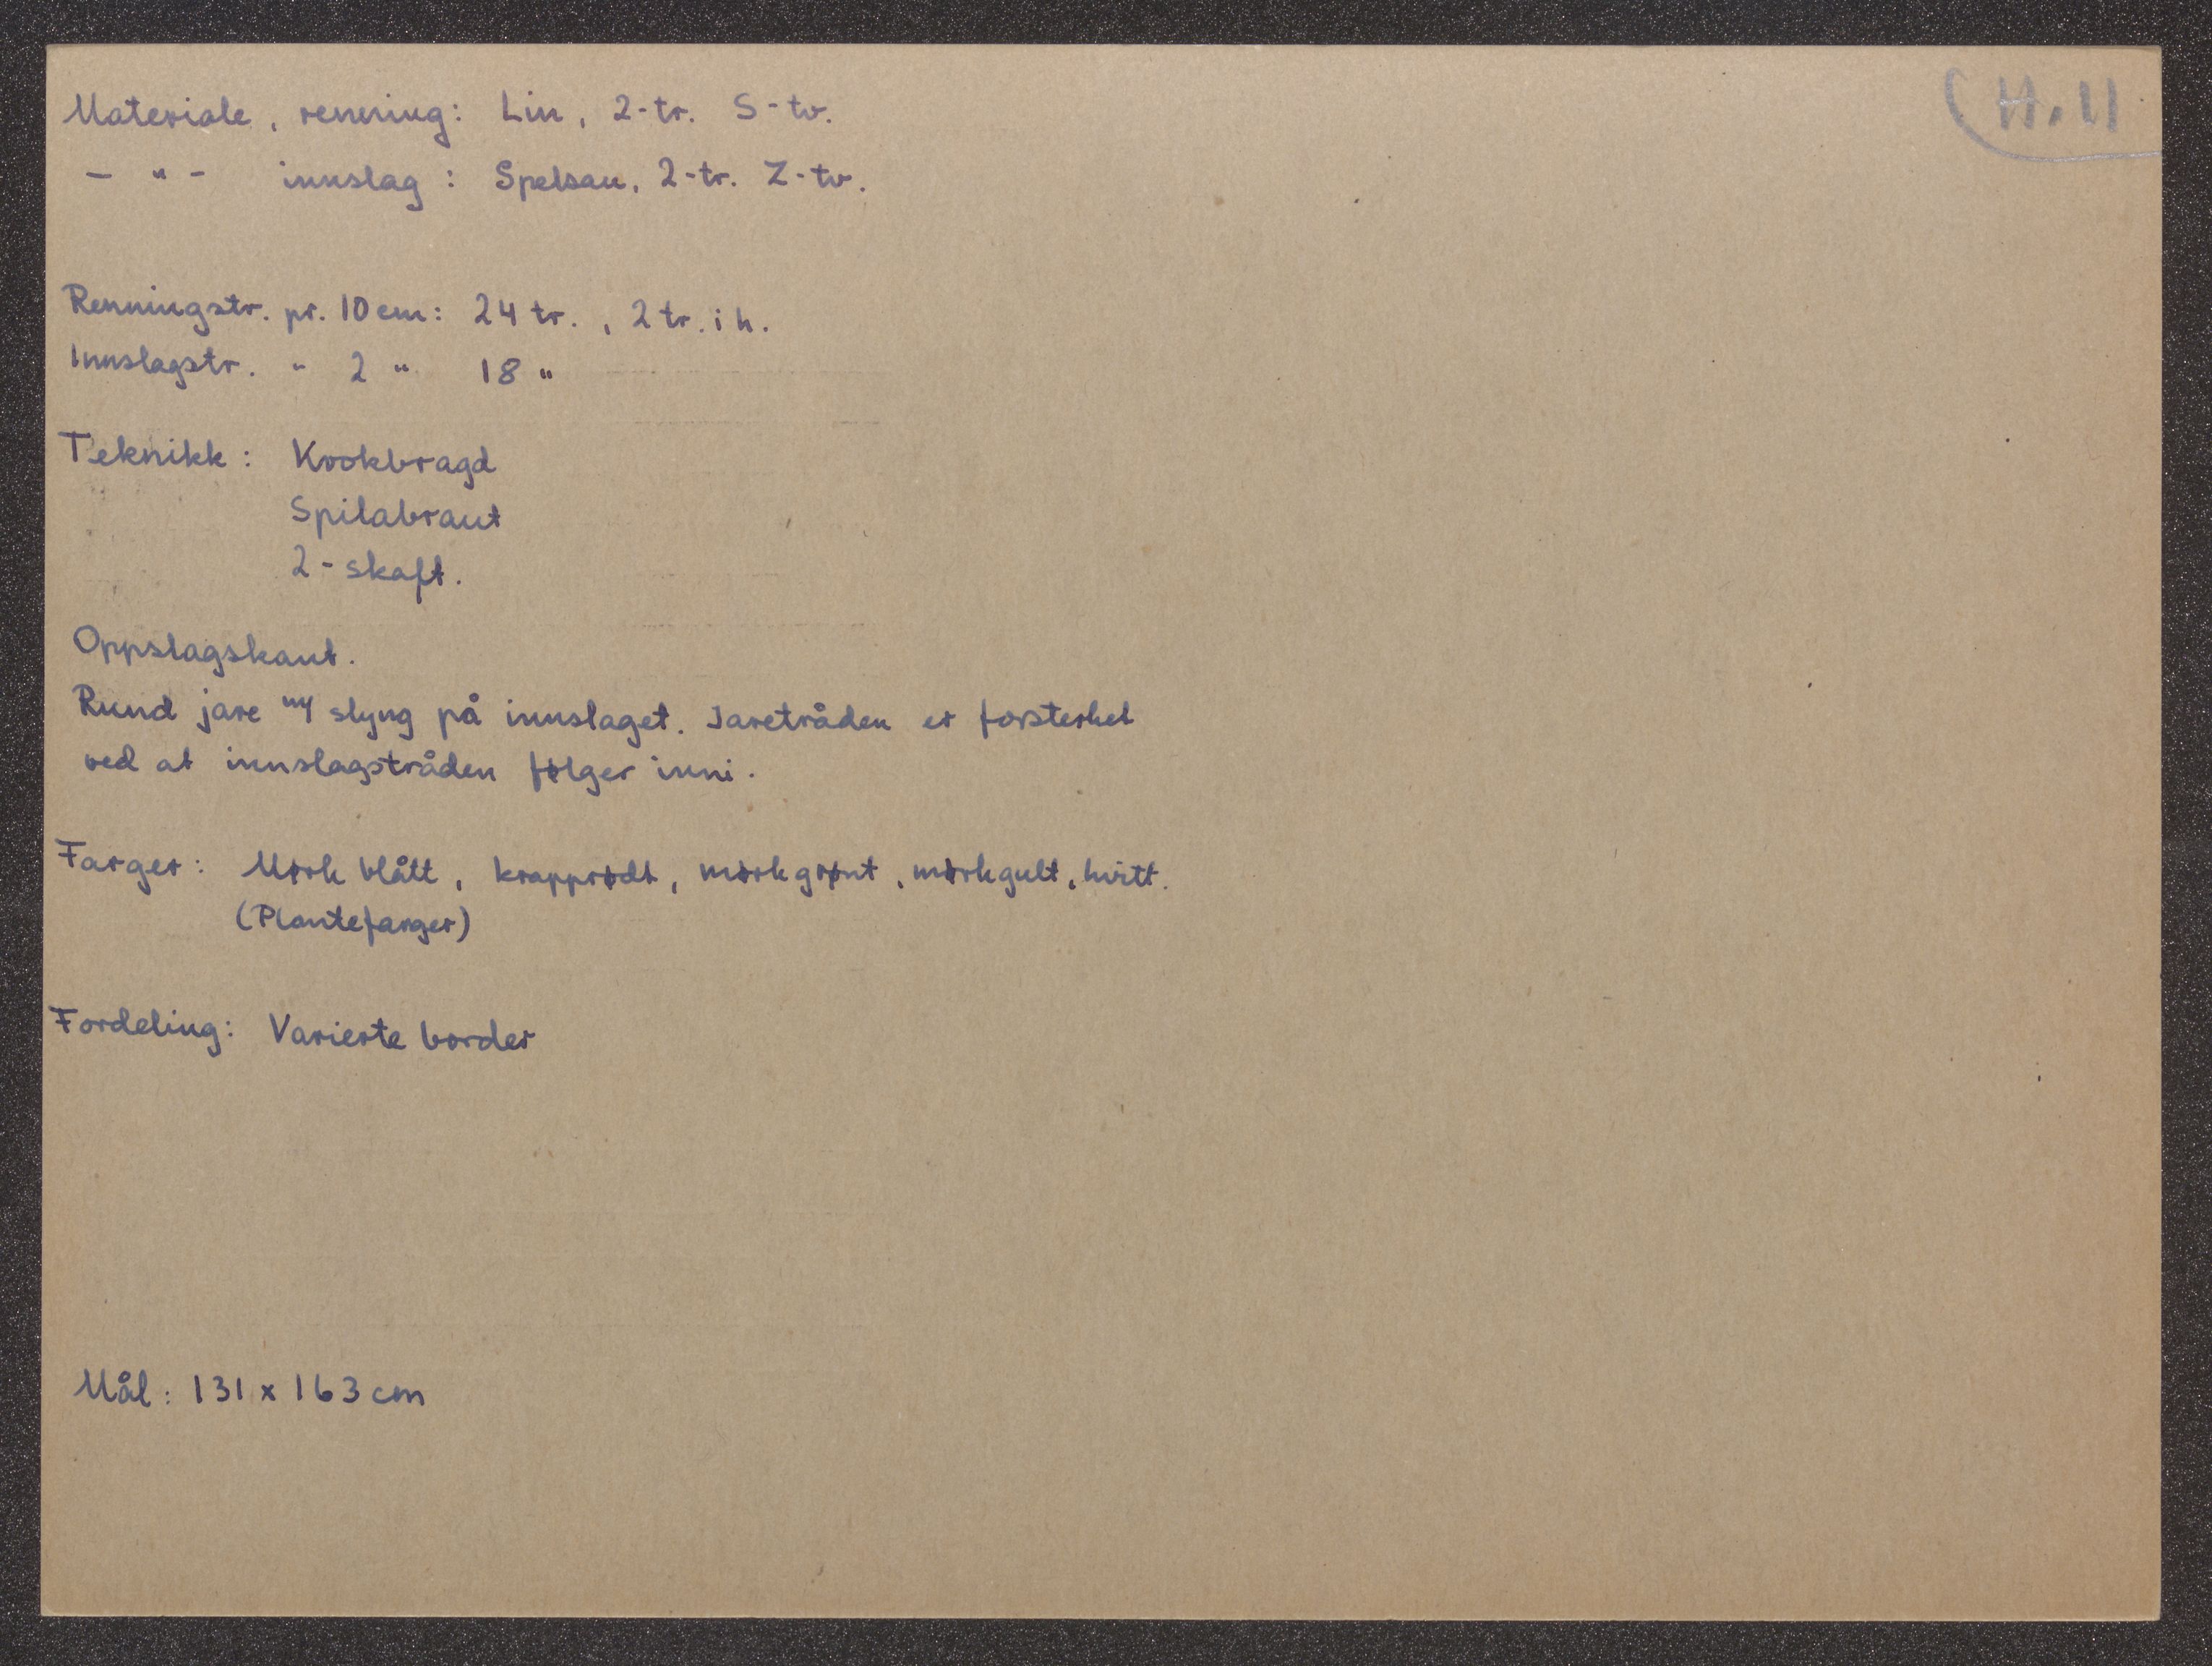 H. 11
Materiale, renning: Lin, 2-tr. S-tv.
- " - innslag: Spelsau, 2-tr. Z-tv.
Renningstr. pr. 10 cm: 24 tr., 2 tr. i h.
Innslagstr. " 2 " 18 "
Teknikk: Krokbragd
Spilabraut
2-skaft.
Oppslagskant.
Rund jare m/ slyng på innslaget. Jaretråden er forsterket
ved at innslagstråden følger inni.
Farger: Mørk blått, krapprødt, mørkgrønt, mørkgult, hvitt.
(Plantefarger)
Fordeling: Varierte border
Mål: 131 x 163 cm